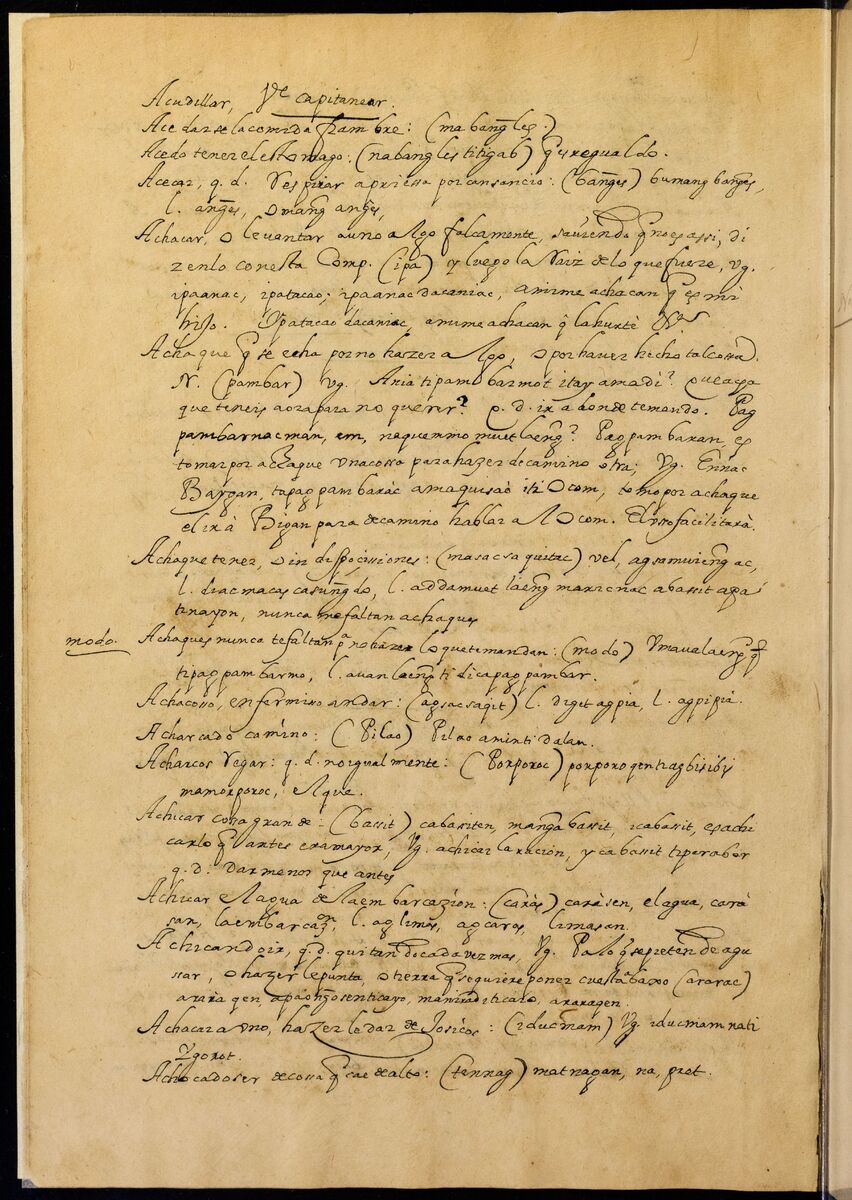 Acudillar, Vᵉ capitanear.
Acedarse la comida fiambre: (mabangles)
Acedo tener el estomago: (nabangles ti tigab) q̃ es regualdo.
Acecar, q. d. respirar apriessa por cansancio: (bãnges) bumang bãnges,
l. anges, omang anges,
Achacar, o levantar a uno algo falcamente, saviendo q̃ no es assi, di
zenlo con esta Comp. (ipa) y luego la Raiz de lo que fuere, vg.
ipaanac, ipatacao; ipaanac dacaniac, a mi me achacan q̃ es mi
hijo. Ipatacao dacaniac, a mi me achacan q̃ la hurtè
Achaque q̃ se echa por no hazer algo, o por haver hecho tal cossa.
N. (pambar) vg. Ania ti pambarmot itay amadi? que acha
que teneis aora para no querer? q. d. ir a donde te mando. Pag
pambarnacman, em, naquemmo met laeng? Pagpambaran, es
tomar por achaque una cossa para hazer de camino otra; Vg. Ennac
Bargan, ta pagpambaràc a maquisaò iti Ocom, tomo por achaque
el ir à Bigan para de camino hablar al Ocom. El uso facilitarà.
Achaque tener, o indispocissiones: (masacsaquitac) vel, agsamuieng ac,
l. diac macascasungdo, l. addamuet laeng maricnac a bassit a pa
tinayon, nunca me faltan achaques
modo. Achaques nunca te faltan pª no hazer lo que te mandan: (modo)
ti pagpambarmo, l. auan laeng ti dica pagpambar.
Achacosso, enfermisso andar: (agsacsaqit) l. digit agpia, l. agpipià.
Acharcado camino: (Pilao) Pilao aminti dalan.
Acharcos regar: q. d. no igualmente: (Porporoc)
mamorporoc, el que.
Achicar cossa grande: (bassit) cabassiten, manga bassit, icabassit, es achi
carlo q̃ antes era mayor, Vg. achicar la racion, y cabassit ti
q. d. dar menos que antes
Achicar el agua de la embarcazion: (caràs) caràsen, el agua, carà
san, la embarcazon, l. aglimas, agcaras, limasan.
Achicandoir, q. d. quitando cada vez mas, Vg. Palo q̃ se pretende agu
ssar, o hazerle punta, o tierra q̃ se quiere poner cuesta abaxo (ararac)
araràqen,
Achacar a uno, hazerle dar de Josicos: (iducmam) Vg. iducmam nati
Ygorot.
Achocado ser de cossa q̃ cae de alto: (tennag) matnagan, na, pret.